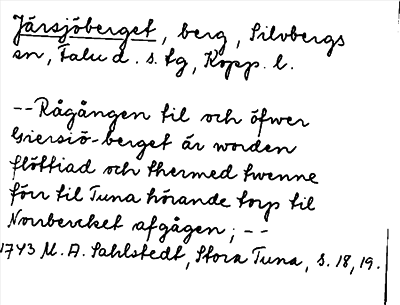 Järsjöberget, berg, Silvbergs
sn, Falu d. s. tg, Kopp. l.
--Rågången til och öfwer
Giersiö-berget är worden
flöttiad och thermed twenne
förr til Tuna hörande torp til
Norrbercket afgågen; --
1743 M. A. Sahlstedt, Stora Tuna, s. 18, 19.